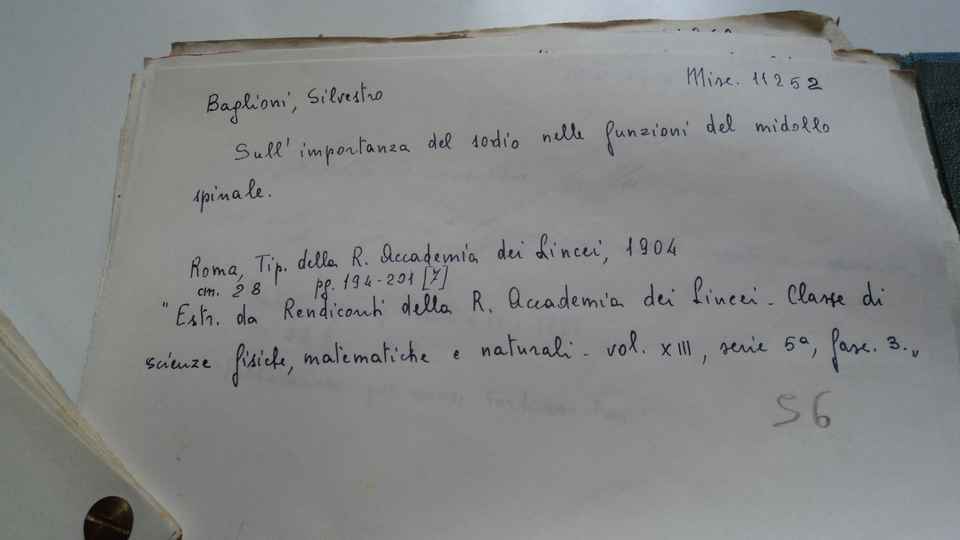 Baglioni, Silvestro
Misc. 11252
Sull' importanza del sodio nelle funzioni del midollo
spinale.
Roma, Tip. della R. Accademia dei Lincei, 1904
cm. 28 pg. 194-201 [7]
"Estr. da Rendiconti della R. Accademia dei Lincei - Classe di
scienze fisiche, matematiche e naturali - vol. XIII, serie 5ª, fasc. 3."
S6